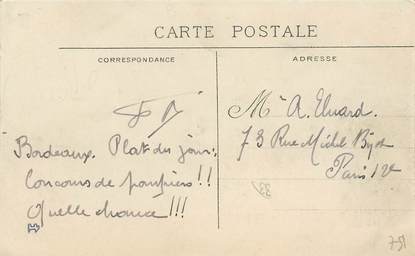 CARTE POSTALE
CORRESPONDANCE
ADRESSE
Bordeaux. Plat du jour:
Concours de pompiers!!
Quelle chance!!!
Mr A. Eluard.
73 Rue Michel Bizot
Paris 12e